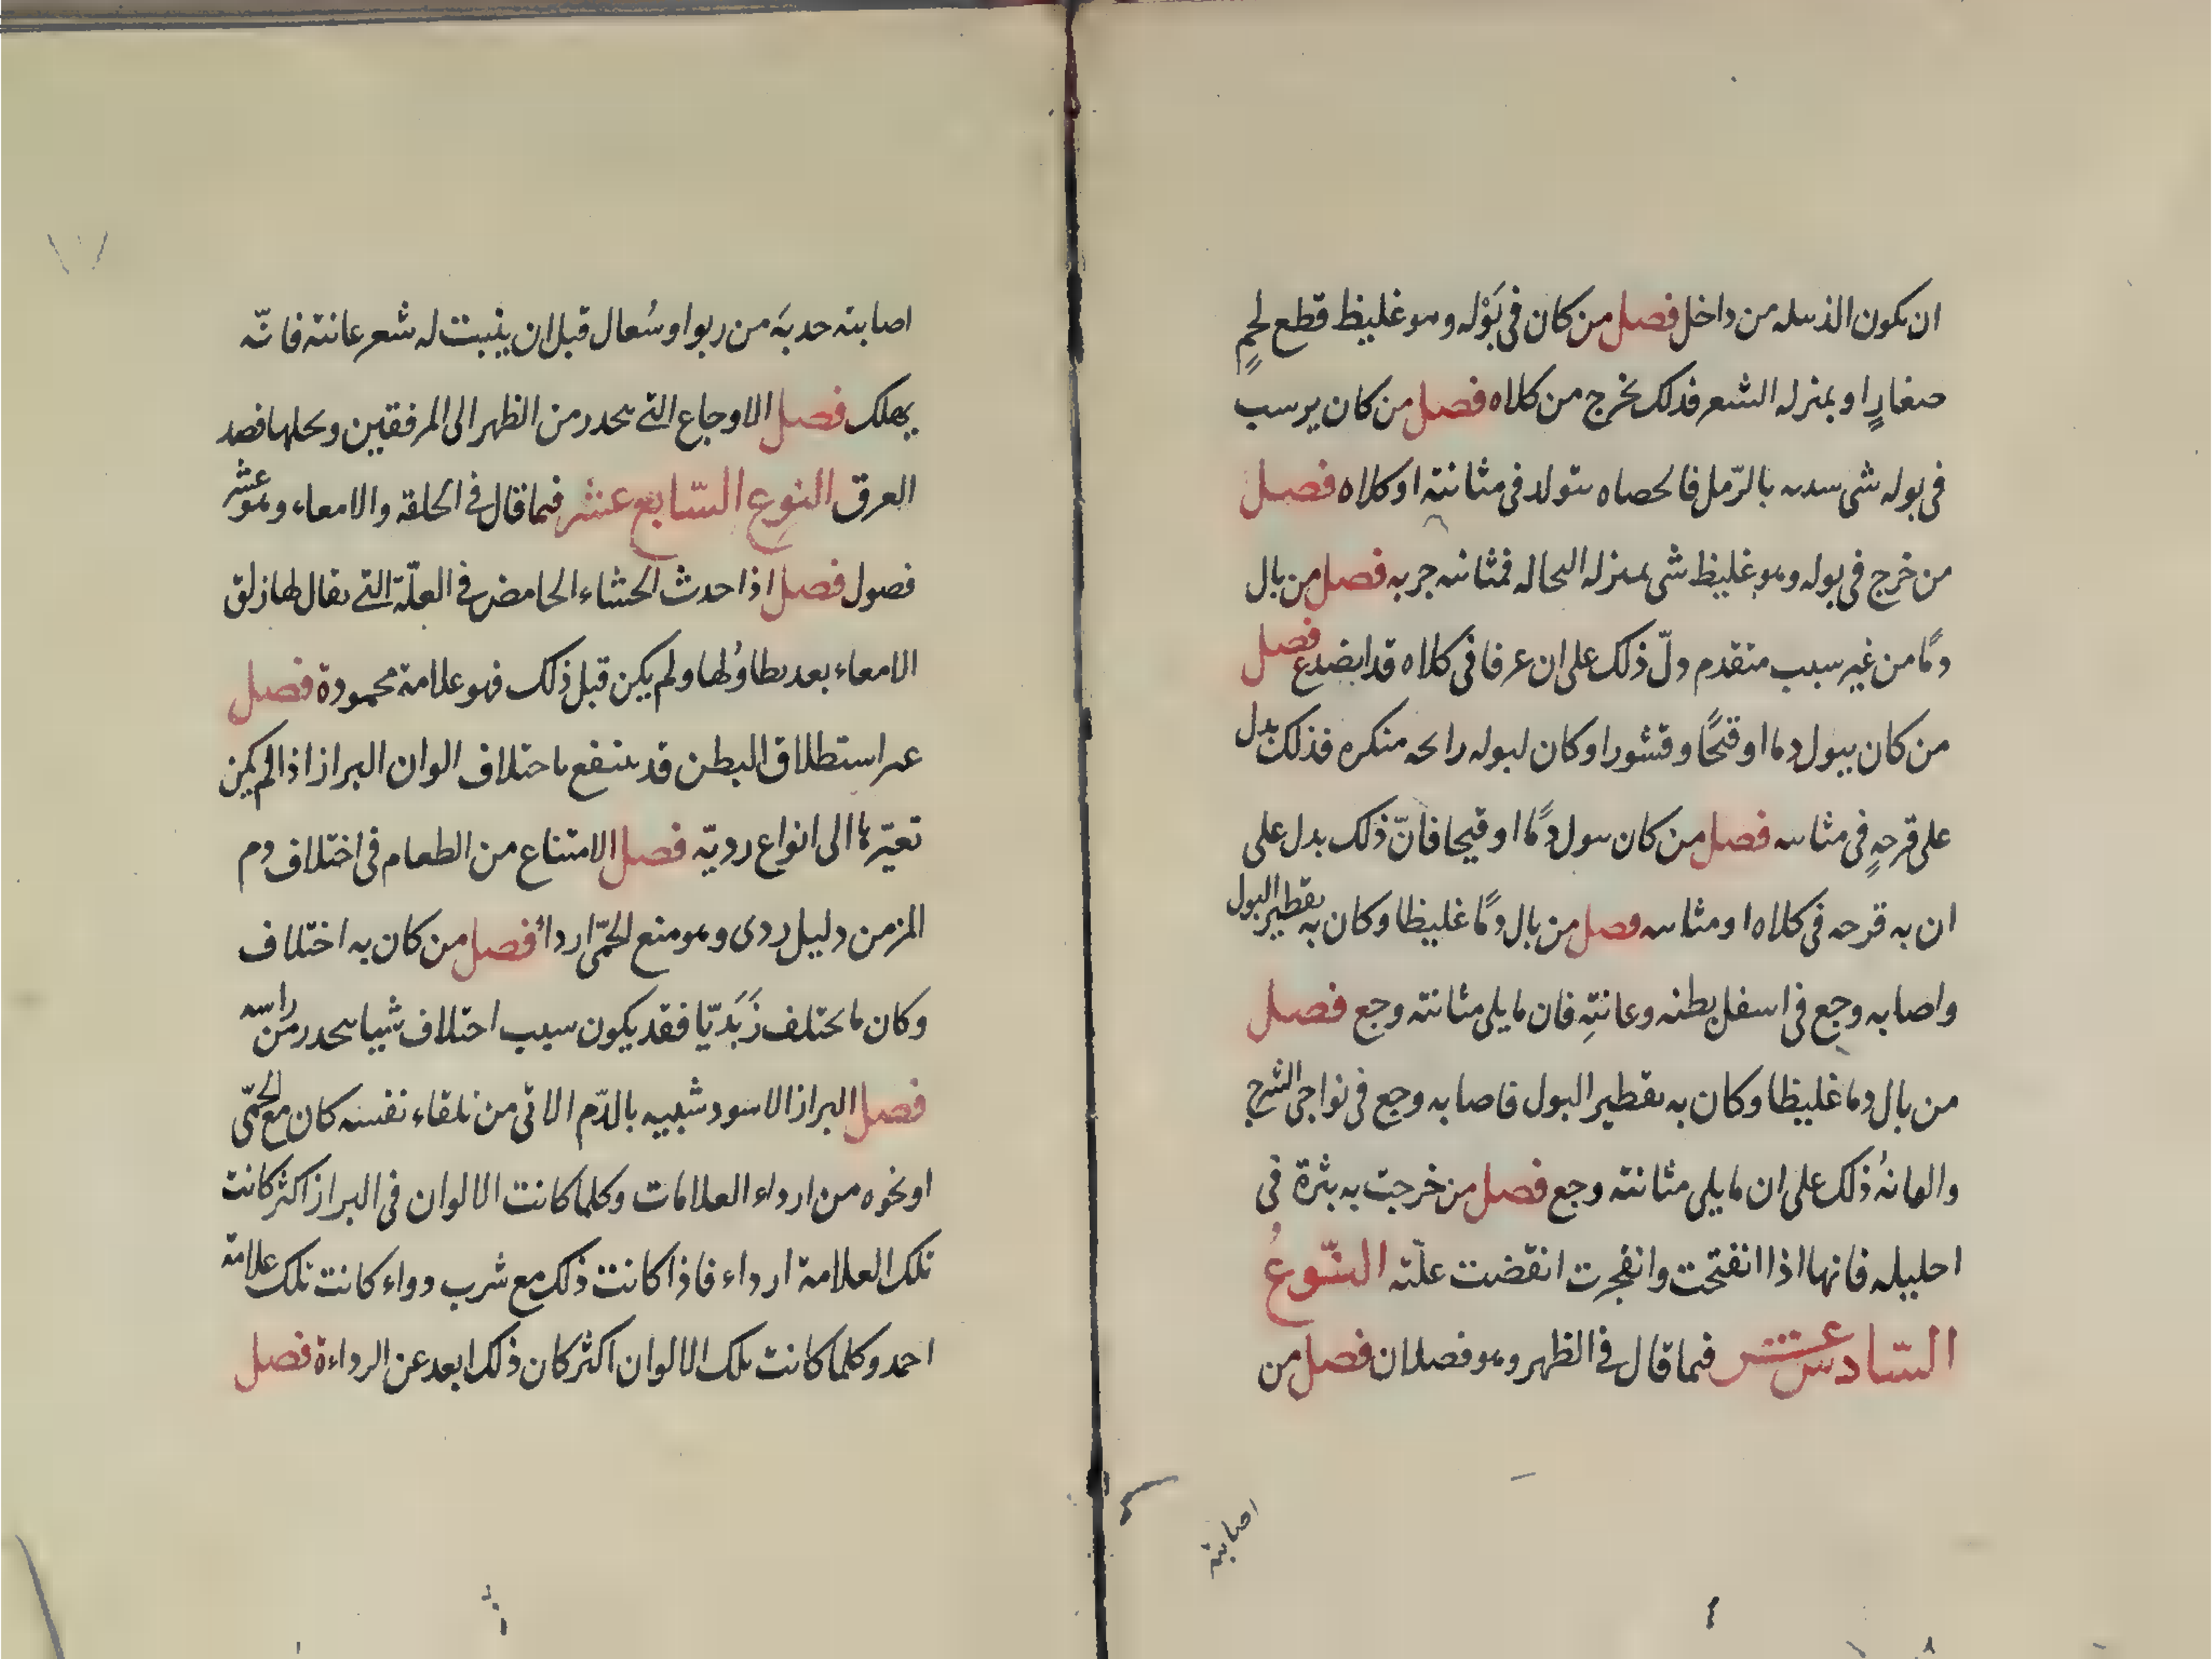 ان يكون الدبيله من داخل فصل من كان فى بَوْله وهو غليظ قطع لحمٍ
صغارٍ او بمنزله الشعر فذلك يخرج من كلاه فصل من كان يرسب
فى بوله شى شبيه بالرّمل فالحصاه تتولد فى مثانته او كلاه فصل
من خرج فى بوله وهو غليظ شى بمنزله النخاله فمثانته جربه فصل من بال
دمًا من غير سبب متقدم دلّ ذلك على ان عرقا فى كلاه قد انصدع فصل
من كان يبول دما او قيحًا وقشورا وكان لبوله رائحه منكره فذلك يدل
على قرحهٍ فى مثانته فصل من كان يبول دمًا او قيحا فانّ ذلك يدل على
ان به قرحه فى كلاه او مثانته فصل من بال دمًا غليظا وكان به تقطير البول
واصابه وجع فى اسفل بطنه وعانتهِ فان ما يلى مثانته وجع فصل
من بال دما غليظا وكان به تقطير البول فاصابه وجع فى نواحى الشرج
والعانهُ ذلك على ان ما يلى مثانته وجع فصل من خرجت به بثرة فى
احليله فانها اذا انفتحت وانفجرت انقضت علّته النّوعُ
السّادس عشر فيما قال فى الظهر وهو فصلان فصل من
اصابته
اصابته حدبَه من ربو او سُعال قبل ان ينبت له شعر عانته فانّه
يهلك فصل الاوجاع التى تنحدر من الظهر الى المرفقين ويحلها فصد
العرق النوع السّابع عشر فيما قال فى الحلقة والامعاء وهو عشر
فصول فصل اذا حدث الحشاء الحامض فى العلّة التى يقال لها زلق
الامعاء بعد تطاوُلها ولم يكن قبل ذلك فهو علامة محمودة فصل
عسر استطلاق البطن قد ينتفع باختلاف الوان البراز اذا لم يكن
تغيّرها الى انواع رديّه فصل الامتناع من الطعام فى اختلاف دم
المزمن دليل ردى وهو منع الحمّى اردأ فصل من كان به اختلاف
وكان ما يختلف زَبَديّا فقد يكون سبب اختلاف شيئا ينحدر من راسه
فصل البراز الاسود شبيه بالدّم الاتى من تلقاء نفسه كان مع الحمّى
او نحوه من ارداء العلامات وكلما كانت الالوان فى البراز اكثر كانت
تلك العلامة ارداء فاذا كانت ذلك مع شرب دواء كانت تلك علامة
احمد وكلما كانت تلك الالوان اكثر كان ذلك ابعد عن الرداءة فصل